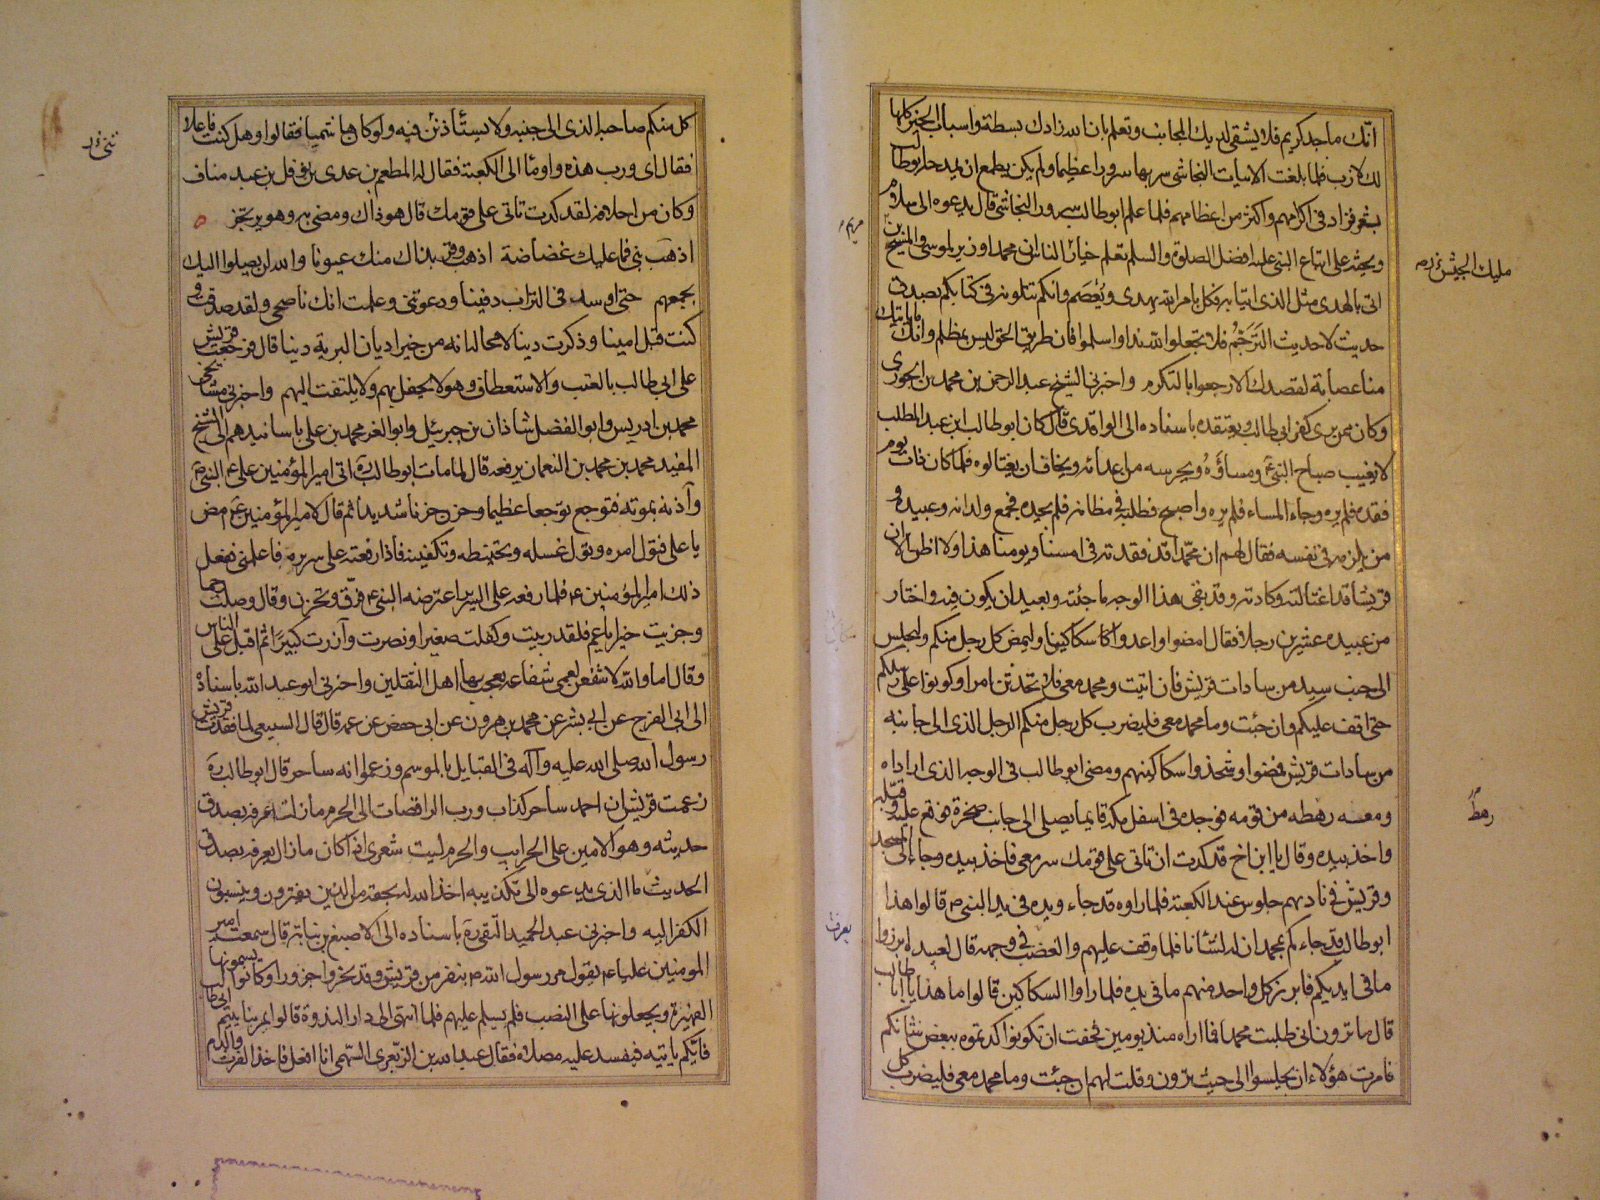 انك ماجد كريم فلا يشقى لديك المجانب وتعلم بان الله زادك بسطة واسباب الخير كلها
لك لازب فلما بلغت الابيات النجاشي سر بها سرورا عظيما ولم يكن يطمع ان يمدحه ابو طالب
بشعر فزاد في اكرامهم واكثر من اعظامهم فلما علم ابو طالب سرور النجاشي قال يدعوه الى الاسلام
ويحثه على اتباع النبي عليه افضل الصلوة والسلم تعلم خيار الناس ان محمدا وزير لموسى والمسيح بن
اتى بالهدى مثل الذي اتيا به فكل بامر الله يهدي ويعصم وانكم تتلونه في كتابكم بصدق
حديث لا حديث الترجم فلا تجعلوا لله ندا واسلموا فان طريق الحق ليس بمظلم وانك ما ياتيك
منا عصابة لقصدك الا ارجعوا بالتكرم واخبرني الشيخ عبد الرحمن بن محمد بن الجوزي
وكان ممن يرى كفر ابي طالب ويعتقده باسناده الى الواقدي قال كان ابو طالب ابن عبد المطلب
لا يغيب صباح النبي ومساؤه ويحرسه من اعدائه ويخاف ان يغتالوه فلما كان ذات يوم
فقده فلم يره وجاء المساء فلم يره واصبح فطلبه في مظانه فلم يجده فجمع ولدانه وعبيده و
من يلزمه في نفسه فقال لهم ان محمدا قد فقدته في امسنا ويومنا هذا ولا اظن الا ان
قريشا قد اغتالته وكادته وقد بقي هذا الوجه ما جئته وبعيد ان يكون فيه واختار
من عبيده عشرين رجلا فقال امضوا واعدوا سكاكينا وليمض كل رجل منكم وليجلس
الى جنب سيد من سادات قريش فان اتيت ومحمد معي فلا تحدثن امرا وكونوا على رسلكم
حتى اقف عليكم وان جئت وما محمد معي فليضرب كل رجل منكم الرجل الذي الى جانبه
من سادات قريش فمضوا وشحذوا سكاكينهم ومضى ابو طالب في الوجه الذي اراده
ومعه رهطه من قومه فوجده في اسفل مكة قايما يصلي الى جانب صخرة فوقع عليه وقبله
واخذ بيده وقال يا ابن اخ قد كدت ان تاتي على قومك سر معي فاخذ بيده وجاء الى المسجد
وقريش في ناديهم جلوس عند الكعبة فلما راوه قد جاء ويده في يد النبي ص قالوا هذا
ابو طالب قد جاءكم بمحمد ان له لشانا فلما وقف عليهم والغضب في وجهه قال لعبيده ابرزوا
ما في ايديكم فابرز كل واحد منهم ما في يده فلما راوا السكاكين قالوا ما هذا يا ابا طالب
قال ما ترون اني طلبت محمدا فما اراه منذ يومين فخفت ان تكونوا كدتموه ببعض شانكم
فامرت هؤلاء ان يجلسوا الى حيث ترون وقلت لهم ان جئت وما محمد معي فليضرب كل
مريم
مليك الحبش
رهط
يعرف
كل منكم صاحبه الذي الى جنبه ولا يستأذني فيه ولو كان هاشميا فقالوا وهل كنت فاعلا
فقال اي ورب هذه واومأ الى الكعبة فقال له المطعم بن عدي بن نوفل بن عبد مناف
وكان من احلافه لقد كدت تاتي على قومك قال هو ذاك ومضى به وهو يرتجز
اذهب بني فما عليك غضاضة اذهب وقر بذاك منك عيونا والله لن يصلوا اليك
بجمعهم حتى اوسد في التراب دفينا ودعوتني وعلمت انك ناصحي ولقد صدقت و
كنت قبل امينا وذكرت دينا لا محالة انه من خير اديان البرية دينا قال فرجعت قريش
على ابي طالب بالعتب والاستعطاف وهو لا يحفل بهم ولا يلتفت اليهم واخبرني مشايخي
محمد بن ادريس وابو الفضل شاذان بن جبرئيل وابو العز محمد بن علي باسانيدهم الى الشيخ
المفيد محمد بن محمد بن النعمان يرفعه قال لما مات ابو طالب ره اتى امير المؤمنين علي ع النبي ص
وآذنه بموته فتوجع توجعا عظيما وحزن حزنا شديدا ثم قال لامير المؤمنين ع امض
يا علي فتول امره وتول غسله وتحنيطه وتكفينه فاذا رفعته على سريره فاعلمني ففعل
ذلك امير المؤمنين ع فلما رفعه على السرير اعترضه النبي ص فرق وتحزن وقال وصلت رحما
وجزيت خيرا يا عم فلقد ربيت وكفلت صغيرا ونصرت وآزرت كبيرا ثم اقبل على الناس
وقال اما والله لاشفعن لعمي شفاعة يعجب بها اهل الثقلين واخبرني ابو عبد الله باسناده
الى ابي الفرج عن ابي بشر عن محمد بن هرون عن ابي حفص عن عمه قال قال السبيعي لما فقدت قريش
رسول الله صلى الله عليه وآله في القبايل بالموسم وزعموا انه ساحر قال ابو طالب ره
زعمت قريش ان احمد ساحر كذاب ورب الراقصات الى الحرم ما زلت اعرفه بصدق
حديثه وهو الامين على الحرايب والحرم ليت شعري اذا كان ما زال يعرفه بصدق
الحديث ما الذي يدعوه الى تكذيبه اخذ الله له بحقه من الذين يفترون وينسبون
الكفر اليه واخبرني عبد الحميد التقي ره باسناده الى الاصبغ بن نباتة قال سمعت امير
المومنين عليا ع يقول مر رسول الله ص بنفر من قريش وقد نحروا جزورا وكانوا يسمونها
الفهيرة ويجعلونها على النصب فلم يسلم عليهم فلما انتهى الى دار الندوة قالوا يمر بنا يتيم ابي طالب
فايكم ياتيه فيفسد عليه مصلاه فقال عبد الله بن الزبعرى السهمي انا افعل فاخذ الفرث والدم